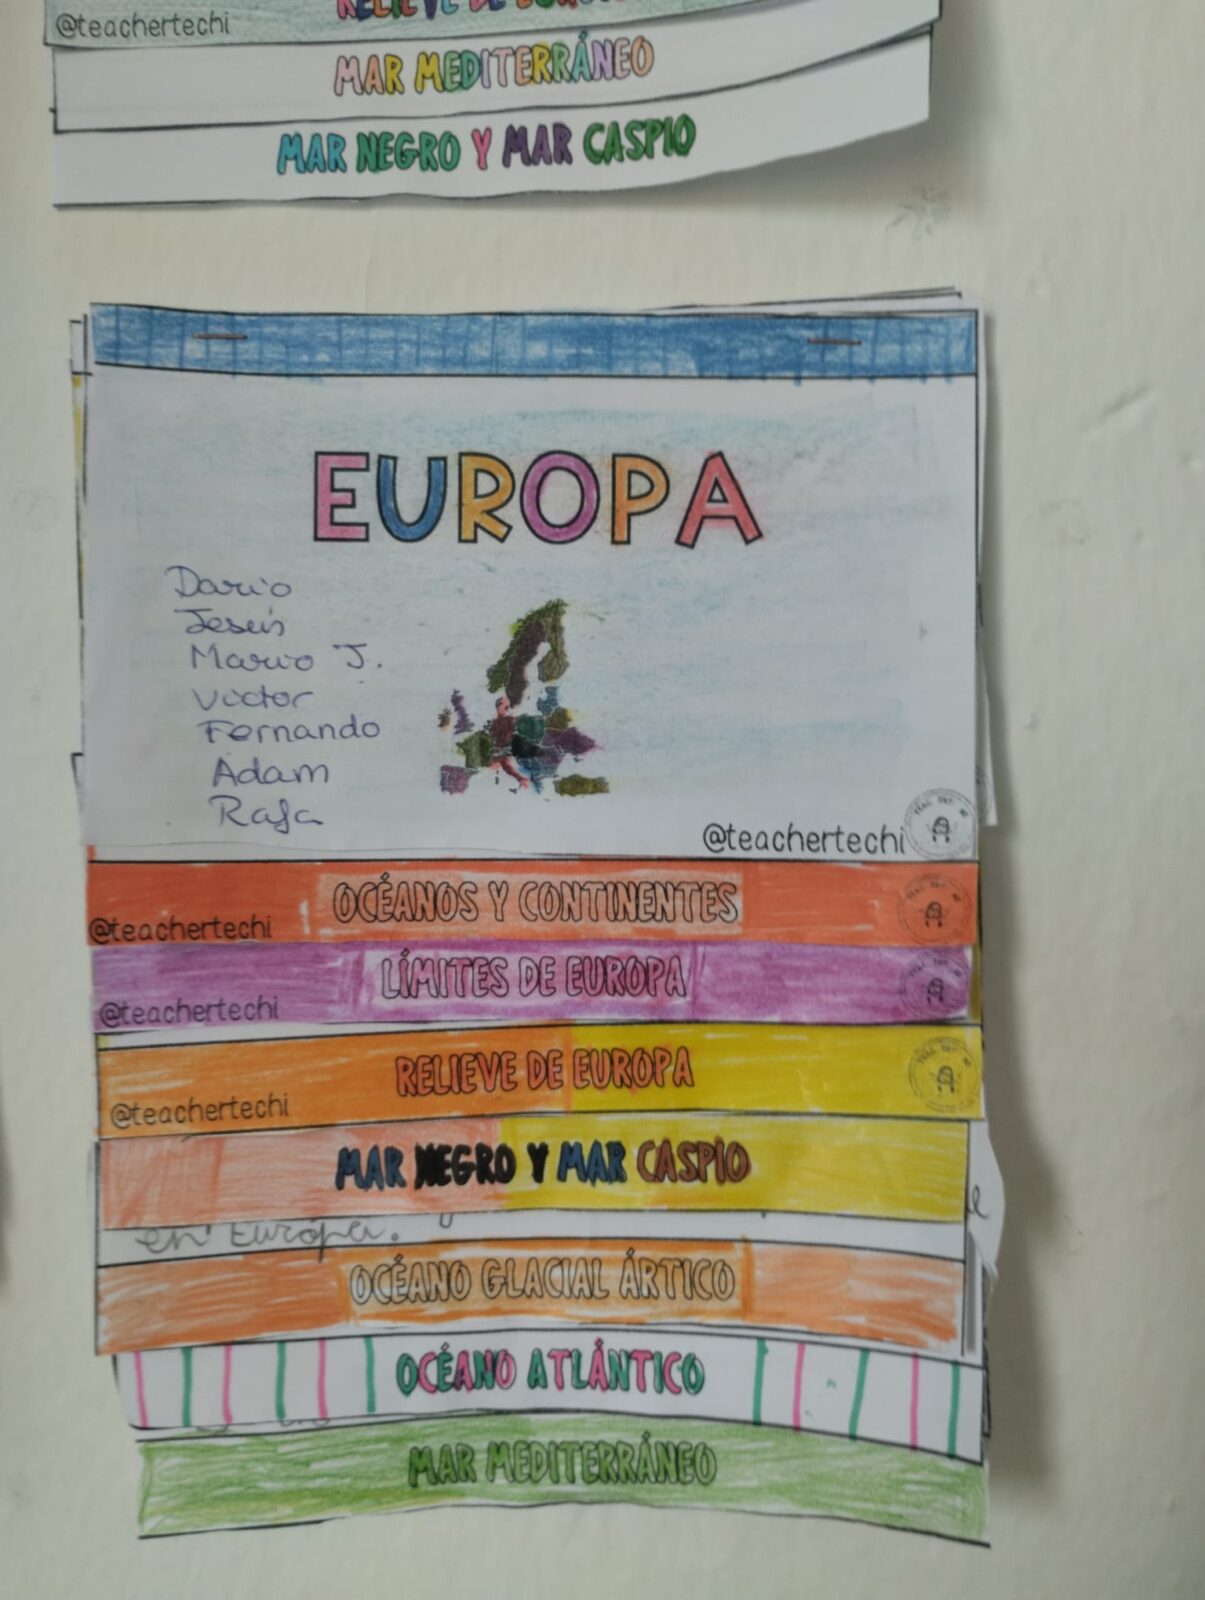 RELIEVE DE EUROPA
@teachertechi
MAR MEDITERRÁNEO
MAR NEGRO Y MAR CASPIO
EUROPA
Dario
Jesús
Mario J.
Victor
Fernando
Adam
Rafa
@teachertechi
OCÉANOS Y CONTINENTES
@teachertechi
LÍMITES DE EUROPA
@teachertechi
RELIEVE DE EUROPA
@teachertechi
MAR NEGRO Y MAR CASPIO
en Európa.
OCÉANO GLACIAL ÁRTICO
OCÉANO ATLÁNTICO
MAR MEDITERRÁNEO